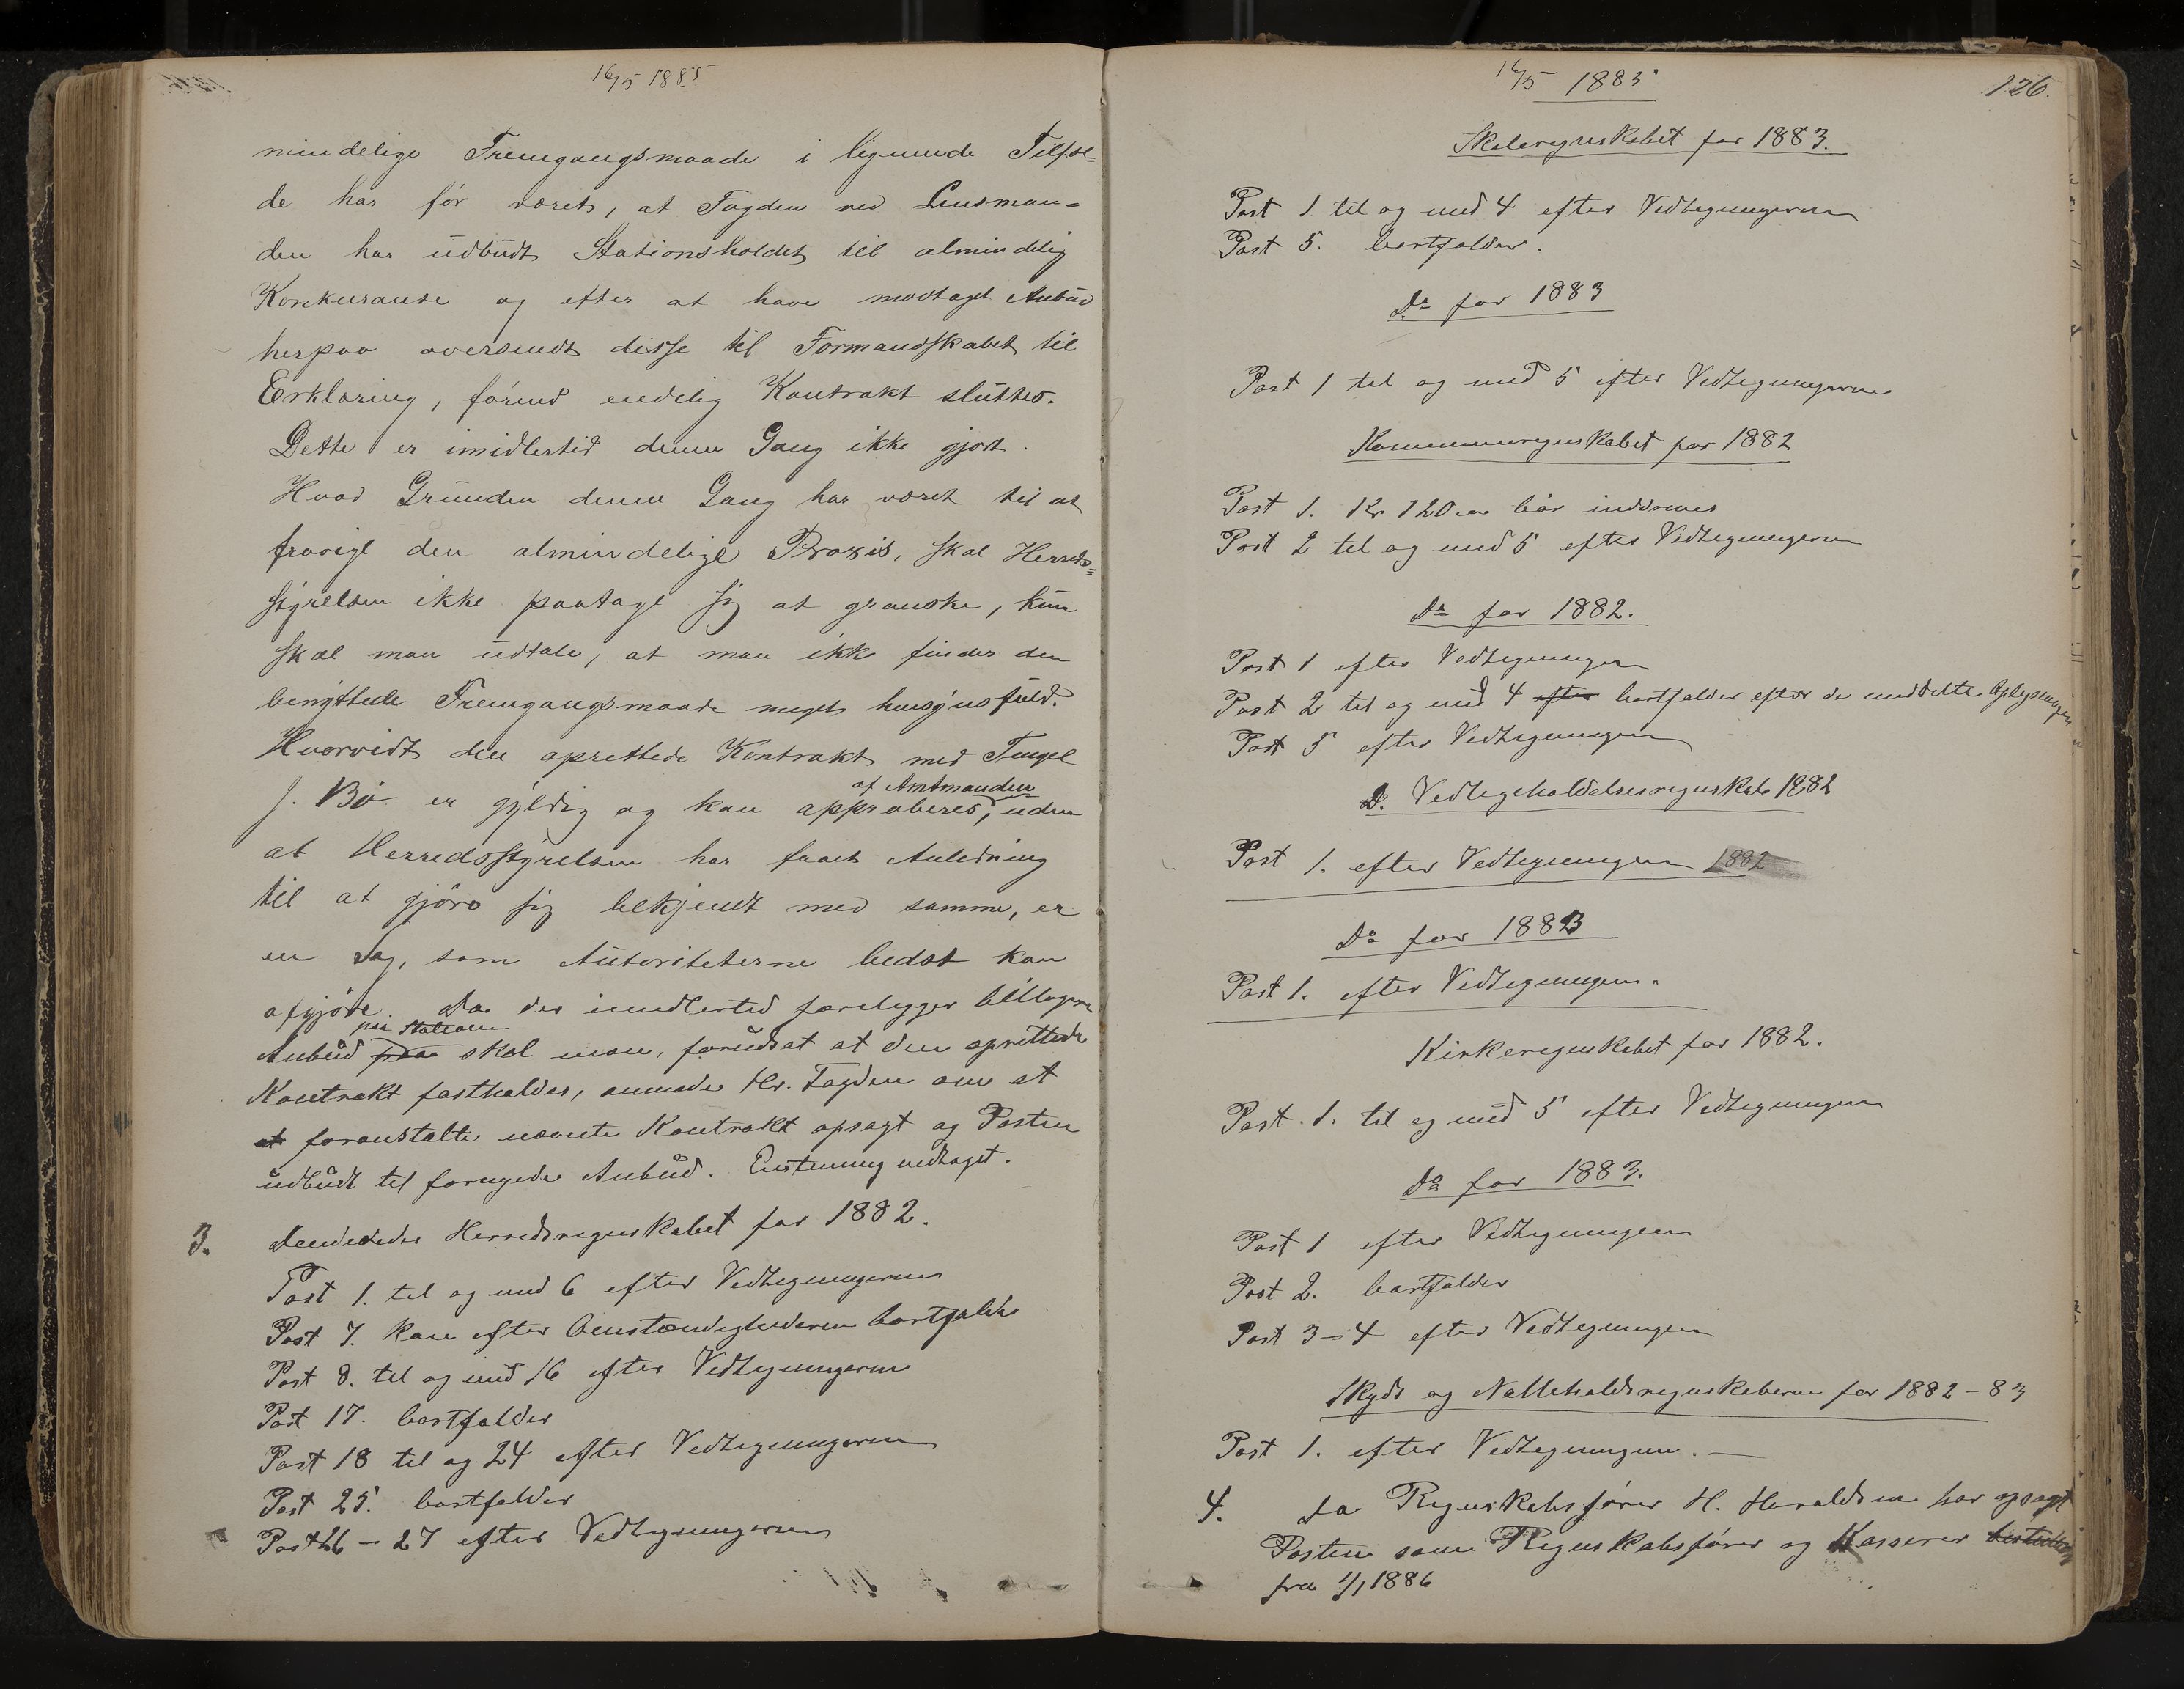 16/5 1885
mindelige Fremgangsmaade i lignende Tilfæl=
de har før været, at Fogden ved Lensman=
den har udbudt Stationsholdet til almindelig
Konkuranse og efter at have modtaget Anbud
herpaa oversendt disse til Formandskabet til
Erklæring, førend endelig Kontrakt sluttes.
Dette er imidlertid denne Gang ikke gjort.
Hvad Grunden denne Gang har været til at
fravige den almindelige Praxis, skal Herreds=
styrelsen ikke paatage sig at granske, kun
skal man udtale, at man ikke finder den
benyttede Fremgangsmaade meget hensynsfuld.
Hvorvidt den oprettede Kontrakt med Tengel
J. Bø er gyldig og kan approberes, uden
af Amtmanden
at Herredsstyrelsen har faaet Anledning
til at gjøre sig bekjendt med samme, er
en Sag, som Autoriteterne bedst kan
afgjøre. Da der imidlertid foreligger billigere
paa Stationen
Anbud paa skal man, forudsat at den oprettede
Kontrakt fastholdes, anmode Hr. Fogden om at
at foranstalte nævnte Kontrakt opsagt og Posten
udbudt til fornyede Anbud. Enstemmig vedtaget.
3. Herredsregnskabet for 1882.
Post 1. til og med 6 efter Vedtegningerne
Post 7. kan efter Omstændighederne bortfalde
Post 8. til og med 16 efter Vedtegningerne
Post 17. bortfalder
Post 18 til og 24 efter Vedtegningerne
Post 25. bortfalder
Post 26 - 27 efter Vedtegningerne
16/5 1885
126.
Skoleregnskabet for 1883.
Post 1. til og med 4 efter Vedtegningerne
Post 5. bortfalder.
Do for 1883
Post 1 til og med 5 efter Vedtegningerne
Kommuneregnskabet for 1882
Post 1. Kr 120 bør inddrives
Post 2 til og med 5 efter Vedtegningerne
Do for 1882.
Post 1 efter Vedtegningen
Post 2 til og med 4 efter bortfalder efter de meddelte Oplysninger
Post 5 efter Vedtegningen
D. Vedligeholdelsesregnskab 1882
Post 1. efter Vedtegningen 1882
Do for 1883
Post 1. efter Vedtegningen.
Kirkeregnskabet for 1882.
Post 1. til og med 5 efter Vedtegningerne
Do for 1883.
Post 1 efter Vedtegningen
Post 2. bortfalder
Post 3-4 efter Vedtegningen
Skyds og regnskaberne for 1882-83
Post 1. efter Vedtegningen.
4. Da Regnskabsfører H. Haraldsen har opsagt
Posten som Regnskabsfører og Kasserer
fra 1/1 1886